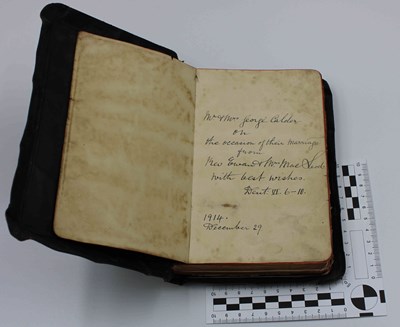 Mr & Mrs George Calder
on
the occasion of their Marriage
from
Rev Ewan & Mrs Mac
with best wishes.
Deut 31. 6-18.
1914.
December 29